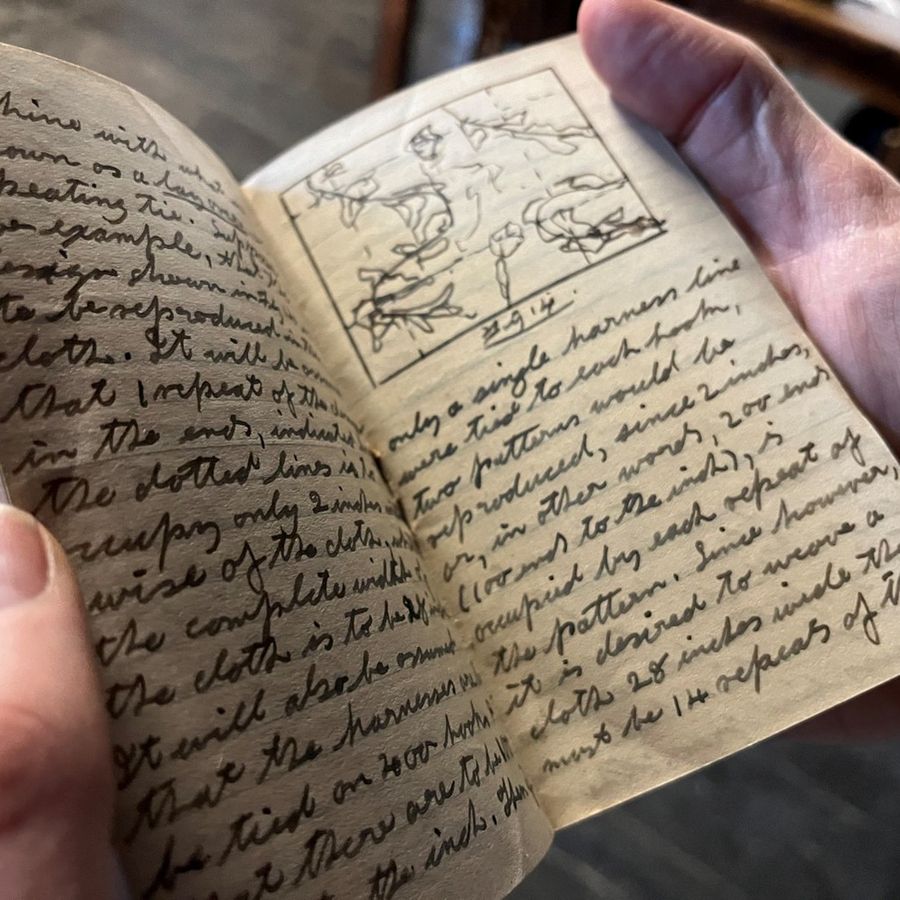 hine with what
own as a lay
peating tie.
example, that
design shown in
to be reproduced in
cloth. It will be
that 1 repeat of the
in the ends, indicated
the dotted lines is
occupy only 2 inches
wise of the cloth.
the complete width
the cloth is to be 28
It will also be assumed
that the harnesses
be tied on 400 hooks
that there are to be
the inch. Then
Fig 14.
only a single harness line
were tied to each hook,
two patterns would be
reproduced, since 2 inches,
or, in other words, 200 ends
(100 ends to the inch), is
occupied by each repeat of
the pattern. Since however,
it is desired to weave a
cloth 28 inches wide the
must be 14 repeats of th